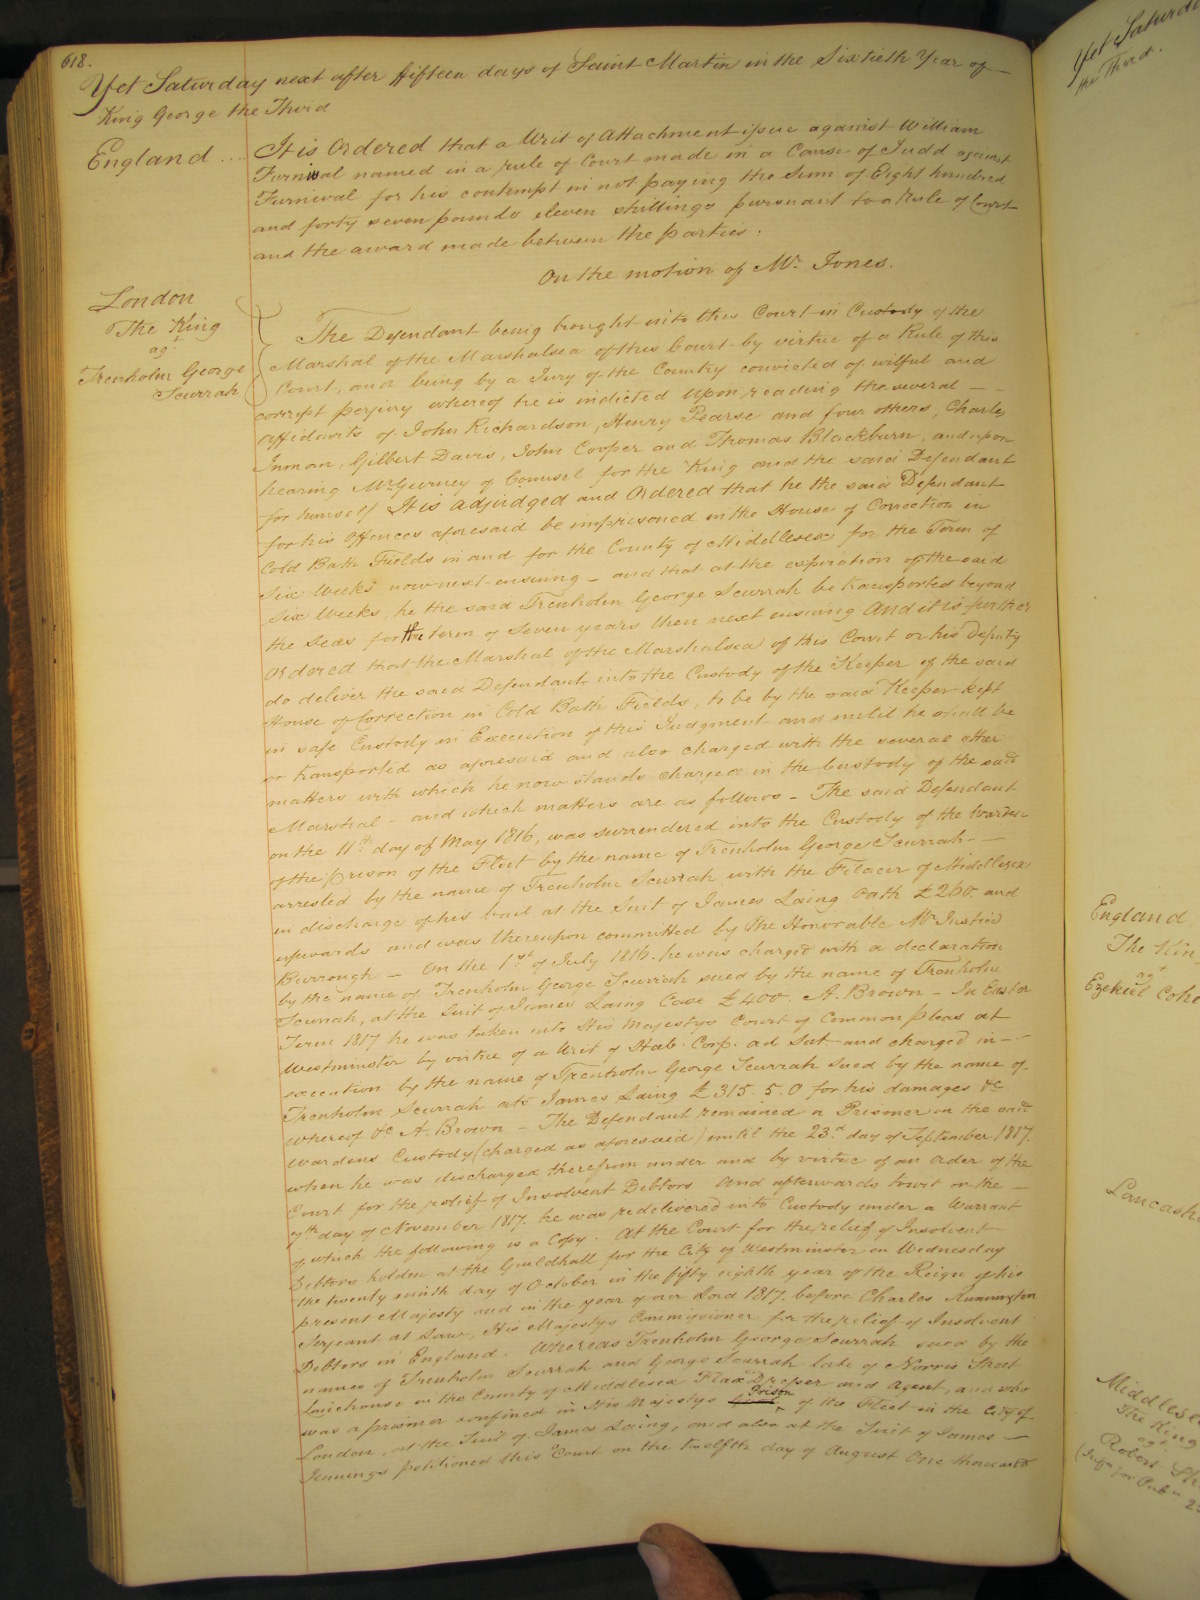 618.
Yet Saturday next after fifteen days of Saint Martin in the Sixtieth Year of
King George the Third
England .... It is Ordered that a Writ of Attachment issue against William
Furnival named in a rule of Court made in a Cause of Judd against
Furnival for his contempt in not paying the Sum of Eight hundred
and forty seven pounds eleven shillings pursuant to a Rule of Court
and the award made between the parties.
On the motion of Mr. Jones.
London
The King
agt.
Trenholm George
Scurrah
The Defendant being brought into this Court in Custody of the
Marshal of the Marshalsea of this Court by virtue of a Rule of this
Court, and being by a Jury of the Country convicted of wilful and
corrupt perjury whereof he is indicted Upon reading the several
affidavits of John Richardson, Henry Pearse and four others, Charles
Inman, Gilbert Davis, John Cooper and Thomas Blackburn, and upon
hearing Mr. Gurney of Counsel for the King and the said Defendant
for himself It is adjudged and Ordered that he the said Defendant
for his Offences aforesaid be imprisoned in the House of Correction in
Cold Bath Fields in and for the County of Middlesex for the Term of
Six Weeks now next ensuing - and that at the expiration of the said
Six Weeks, he the said Trenholm George Scurrah be transported beyond
the Seas for the term of Seven years then next ensuing And it is further
Ordered that the Marshal of the Marshalsea of this Court or his Deputy
do deliver the said Defendant into the Custody of the Keeper of the said
House of Correction in Cold Bath Fields, to be by the said Keeper kept
in safe Custody in Execution of this Judgment and until he shall be
so transported as aforesaid and also charged with the several other
matters with which he now stands charged in the Custody of the said
Marshal - and which matters are as follows - The said Defendant
on the 11th day of May 1816, was surrendered into the Custody of the Warden
of the prison of the Fleet by the name of Trenholm George Scurrah
arrested by the name of Trenholm Scurrah with the Filacer of Middlesex
in discharge of his bail at the Suit of James Laing Oath £260 and
upwards and was thereupon committed by The Honorable Mr Justice
Burrough - On the 1st of July 1816. he was charged with a declaration
by the name of Trenholm George Scurrah sued by the name of Trenholm
Scurrah, at the Suit of James Laing Case £400. A. Brown - In Easter
Term 1817 he was taken into His Majestys Court of Common pleas at
Westminster by virtue of a Writ of Hab. Corp. ad Sat and charged in
execution by the name of Trenholm George Scurrah sued by the name of
Trenholm Scurrah ats James Laing £315. 5. 0 for his damages &c
whereof &c A. Brown - The Defendant remained a Prisoner in the said
Wardens Custody (charged as aforesaid) until the 23d day of September 1817.
when he was discharged therefrom under and by virtue of an Order of the
Court for the relief of Insolvent Debtors And afterwards towit on the
7th day of November 1817. he was redelivered into Custody under a Warrant
of which the following is a Copy. At the Court for the relief of Insolvent
Debtors holden at the Guildhall for the City of Westminster on Wednesday
the twenty ninth day of October in the fifty eighth year of the Reign of his
present Majesty and in the year of our Lord 1817. before Charles Runnington
Serjeant at Law, His Majestys Commissioner for the relief of Insolvent
Debtors in England. Whereas Trenholm George Scurrah sued by the
names of Trenholm Scurrah and George Scurrah late of Norris Street
Limehouse in the County of Middlesex Flax Dresser and Agent, and who
was a prisoner confined in His Majestys Prison of the Fleet in the City of
London, at the Suit of James Laing, and also at the Suit of James
Jennings petitioned this Court on the twelfth day of August One thousand
Yet Saturda
the Third.
England
The Kin
agt
Ezekiel Cohe
Lancash
Middlese
The King
agt.
Robert Sh